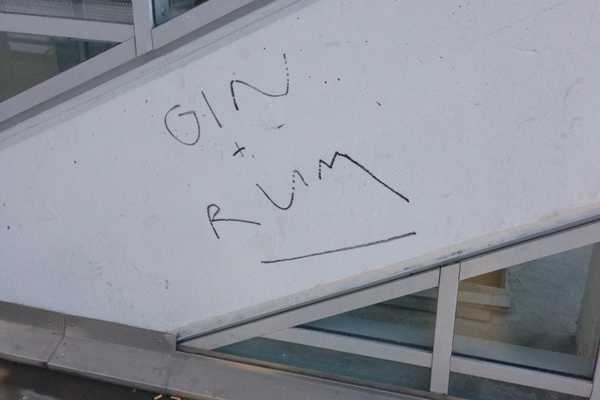 GIN
+
RUM